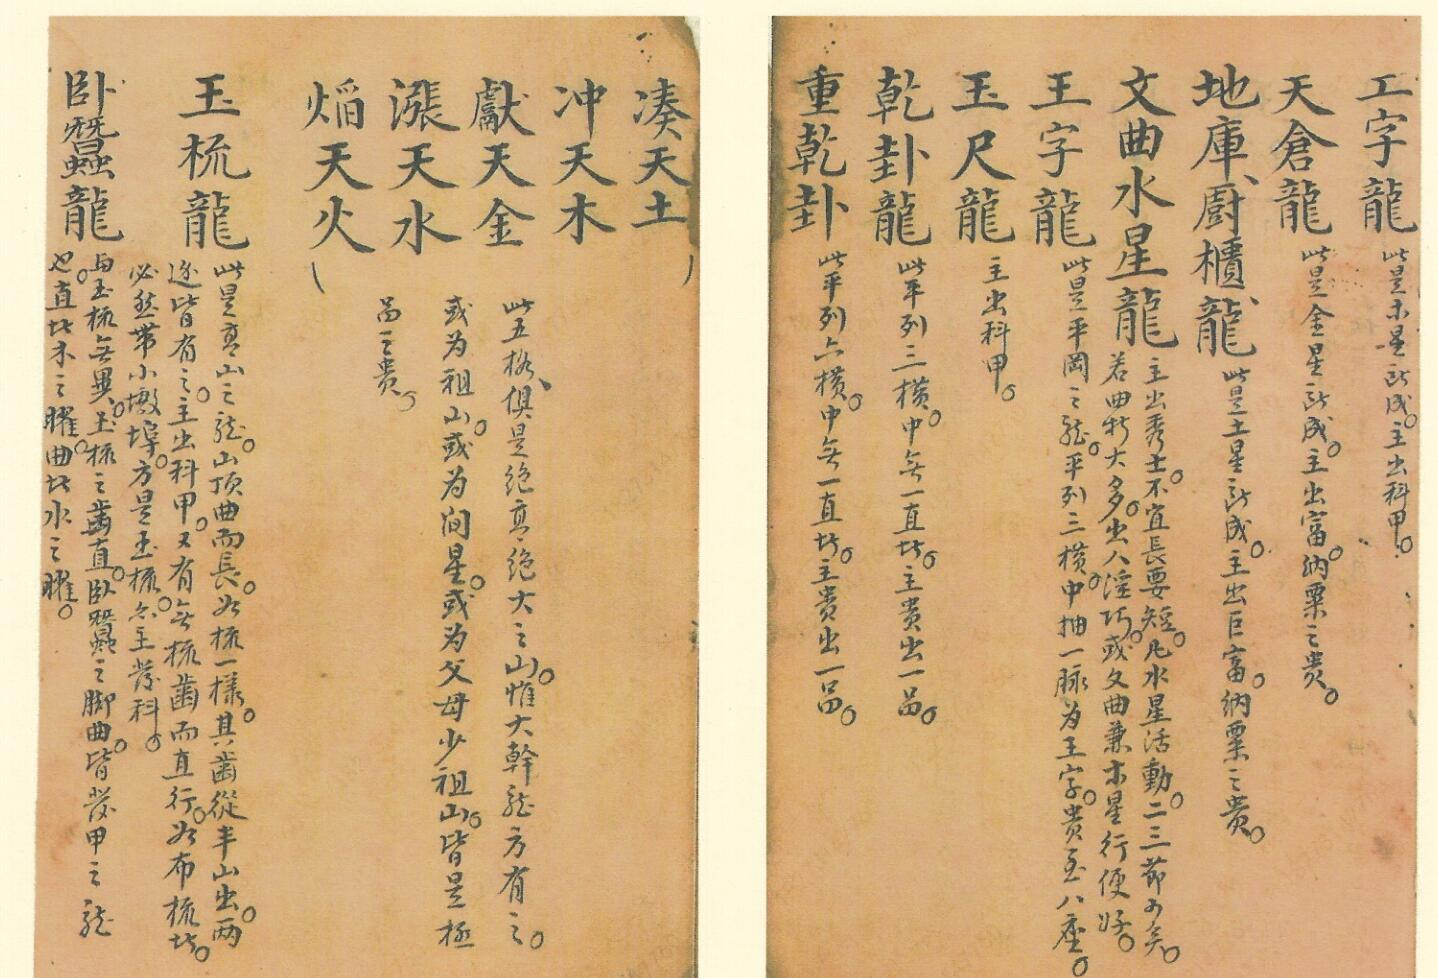 工字龍 此是木星所成。主出科甲。
天倉龍 此是金星所成。主出富。納粟之貴。
地庫、厨櫃、龍 此是土星所成。主出巨富。納粟之貴。
文曲水星龍 主出秀士。不宜長要短。凡水星活動。二三節可矣。
若曲折大多。出人淫巧。或文曲兼木星行便好。
王字龍 此是平岡之龍。平列三横。中抽一脉为王字。貴至八座。
玉尺龍 主出科甲。
乾卦龍 此平列三横。中無一直故。主貴出一品。
重乾卦 此平列六横。中無一直故。主貴出一品。
湊天土
冲天木
獻天金
漲天水
焰天火
此五格、俱是絶高絶大之山。惟大幹龍方有之。
或为祖山。或为间星。或为父母少祖山。皆是極
品之貴。
玉梳龍 此是高山之龍。山顶曲而長。如梳一様。其齒從半山出。两
边皆有之。主出科甲。又有無梳齒而直行。如布梳故。
必然帶小墩埠。方是玉梳。亦主發科。
卧蠶龍 与玉梳無異。玉梳之齒直。卧蠶之脚曲。皆發甲之龍
也。直故木之曜。曲故水之曜。